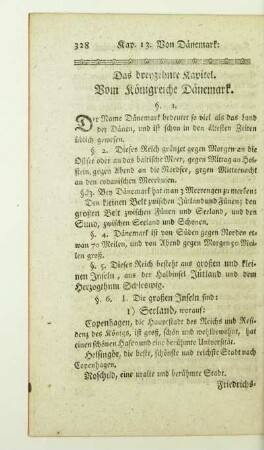 328 Kap. 13. Von Dänemark:
Das dreyzehnte Kapitel.
Vom Königreiche Dänemark.
§. 1.
Der Name Dänemark bedeutet so viel als das Land
der Dänen, und ist schon in den ältesten Zeiten
üblich gewesen.
§. 2. Dieses Reich gränzet gegen Morgen an die
Ostsee oder an das baltische Meer, gegen Mittag an Hol-
stein, gegen Abend an die Nordsee, gegen Mitternacht
an den codanischen Meerbusen.
§. 3. Bey Dänemark hat man 3 Meerengen zu merken:
Den kleinen Belt zwischen Jütland und Fünen; den
großen Belt zwischen Fünen und Seeland, und den
Sund, zwischen Seeland und Schonen.
§. 4. Dänemark ist von Süden gegen Norden et-
wan 70 Meilen, und von Abend gegen Morgen 50 Mei-
len groß.
§. 5. Dieses Reich besteht aus großen und klei-
nen Inseln, aus der Halbinsel Jütland und dem
Herzogthum Schleswig.
§. 6. 1. Die großen Inseln sind:
1) Seeland, worauf:
Copenhagen, die Hauptstadt des Reichs und Resi-
denz des Königs, ist groß, schön und wohlbewahrt, hat
einen schönen Hafen und eine berühmte Universität.
Helsingör, die beste, schönste und reichste Stadt nach
Copenhagen.
Roschild, eine uralte und berühmte Stadt.
Friedrichs-